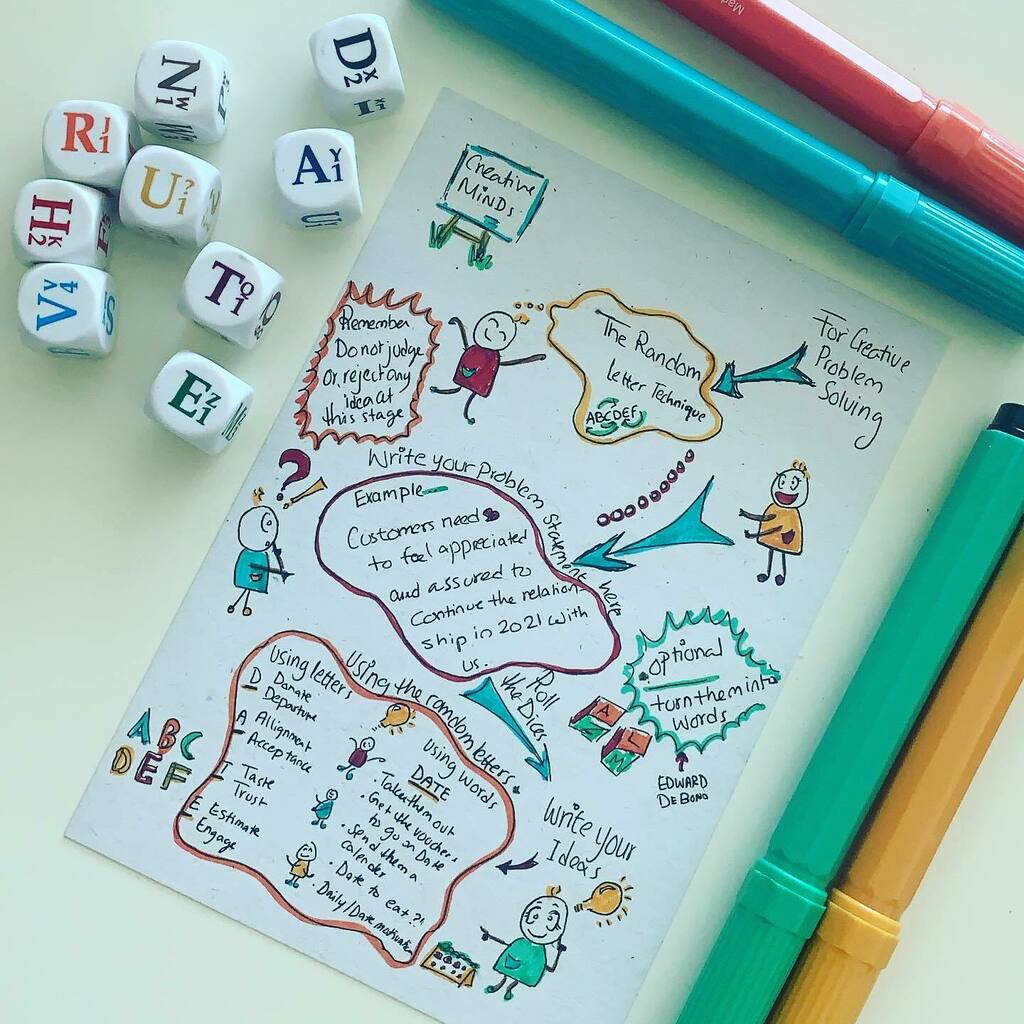 N
1
W
D
2
X
I
R
1
J
U
1
?
A
1
Y
U
H
2
K
V
4
V
T
1
Q
E
1
Z
Mad
Creative
MINDS
Remember
Do not judge
Or reject any
idea at
this stage
The Random
Letter Technique
ABCDEF
For Creative
Problem
Solving
Write your Problem Statement here
Example
Customers need
to feel appreciated
and assured to
Continue the relation
ship in 2021 with
us.
Roll
the Dices
optional
turn them into
words
A
M
EDWARD
DE BONO
Using the romdom letters.
using letters
D Donate
Departure
A Allignment
Acceptance
T Taste
Trust
E Estimate
Engage
using words
DATE
. Take them out
. Get the vouchers
to go on Date
. Send them a
calender
. Date to eat ?!
. Daily/Date motivation
ABC
DEF
Write your
Ideas